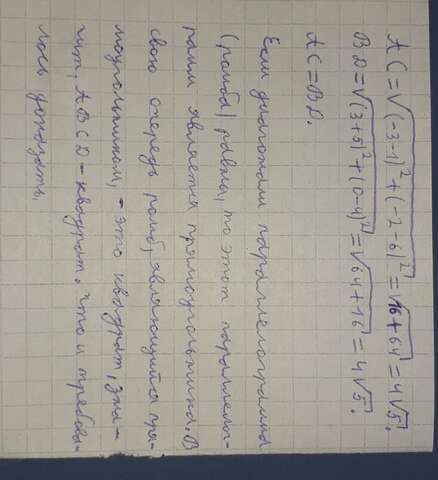 AC=√(-3-1)²+(-2-6)²=√16+64=4√5.
BD=√(3+5)²+(0-4)²=√64+16=4√5.
AC=BD.
Если диагонали параллелограмма
(ромба) равны, то этот параллелог-
рамм является прямоугольника. В
свою очередь ромб, являющийся пря-
моугольником, - это квадрат, зна-
чит, ABCD - квадрат. Что и требова-
лось доказать.